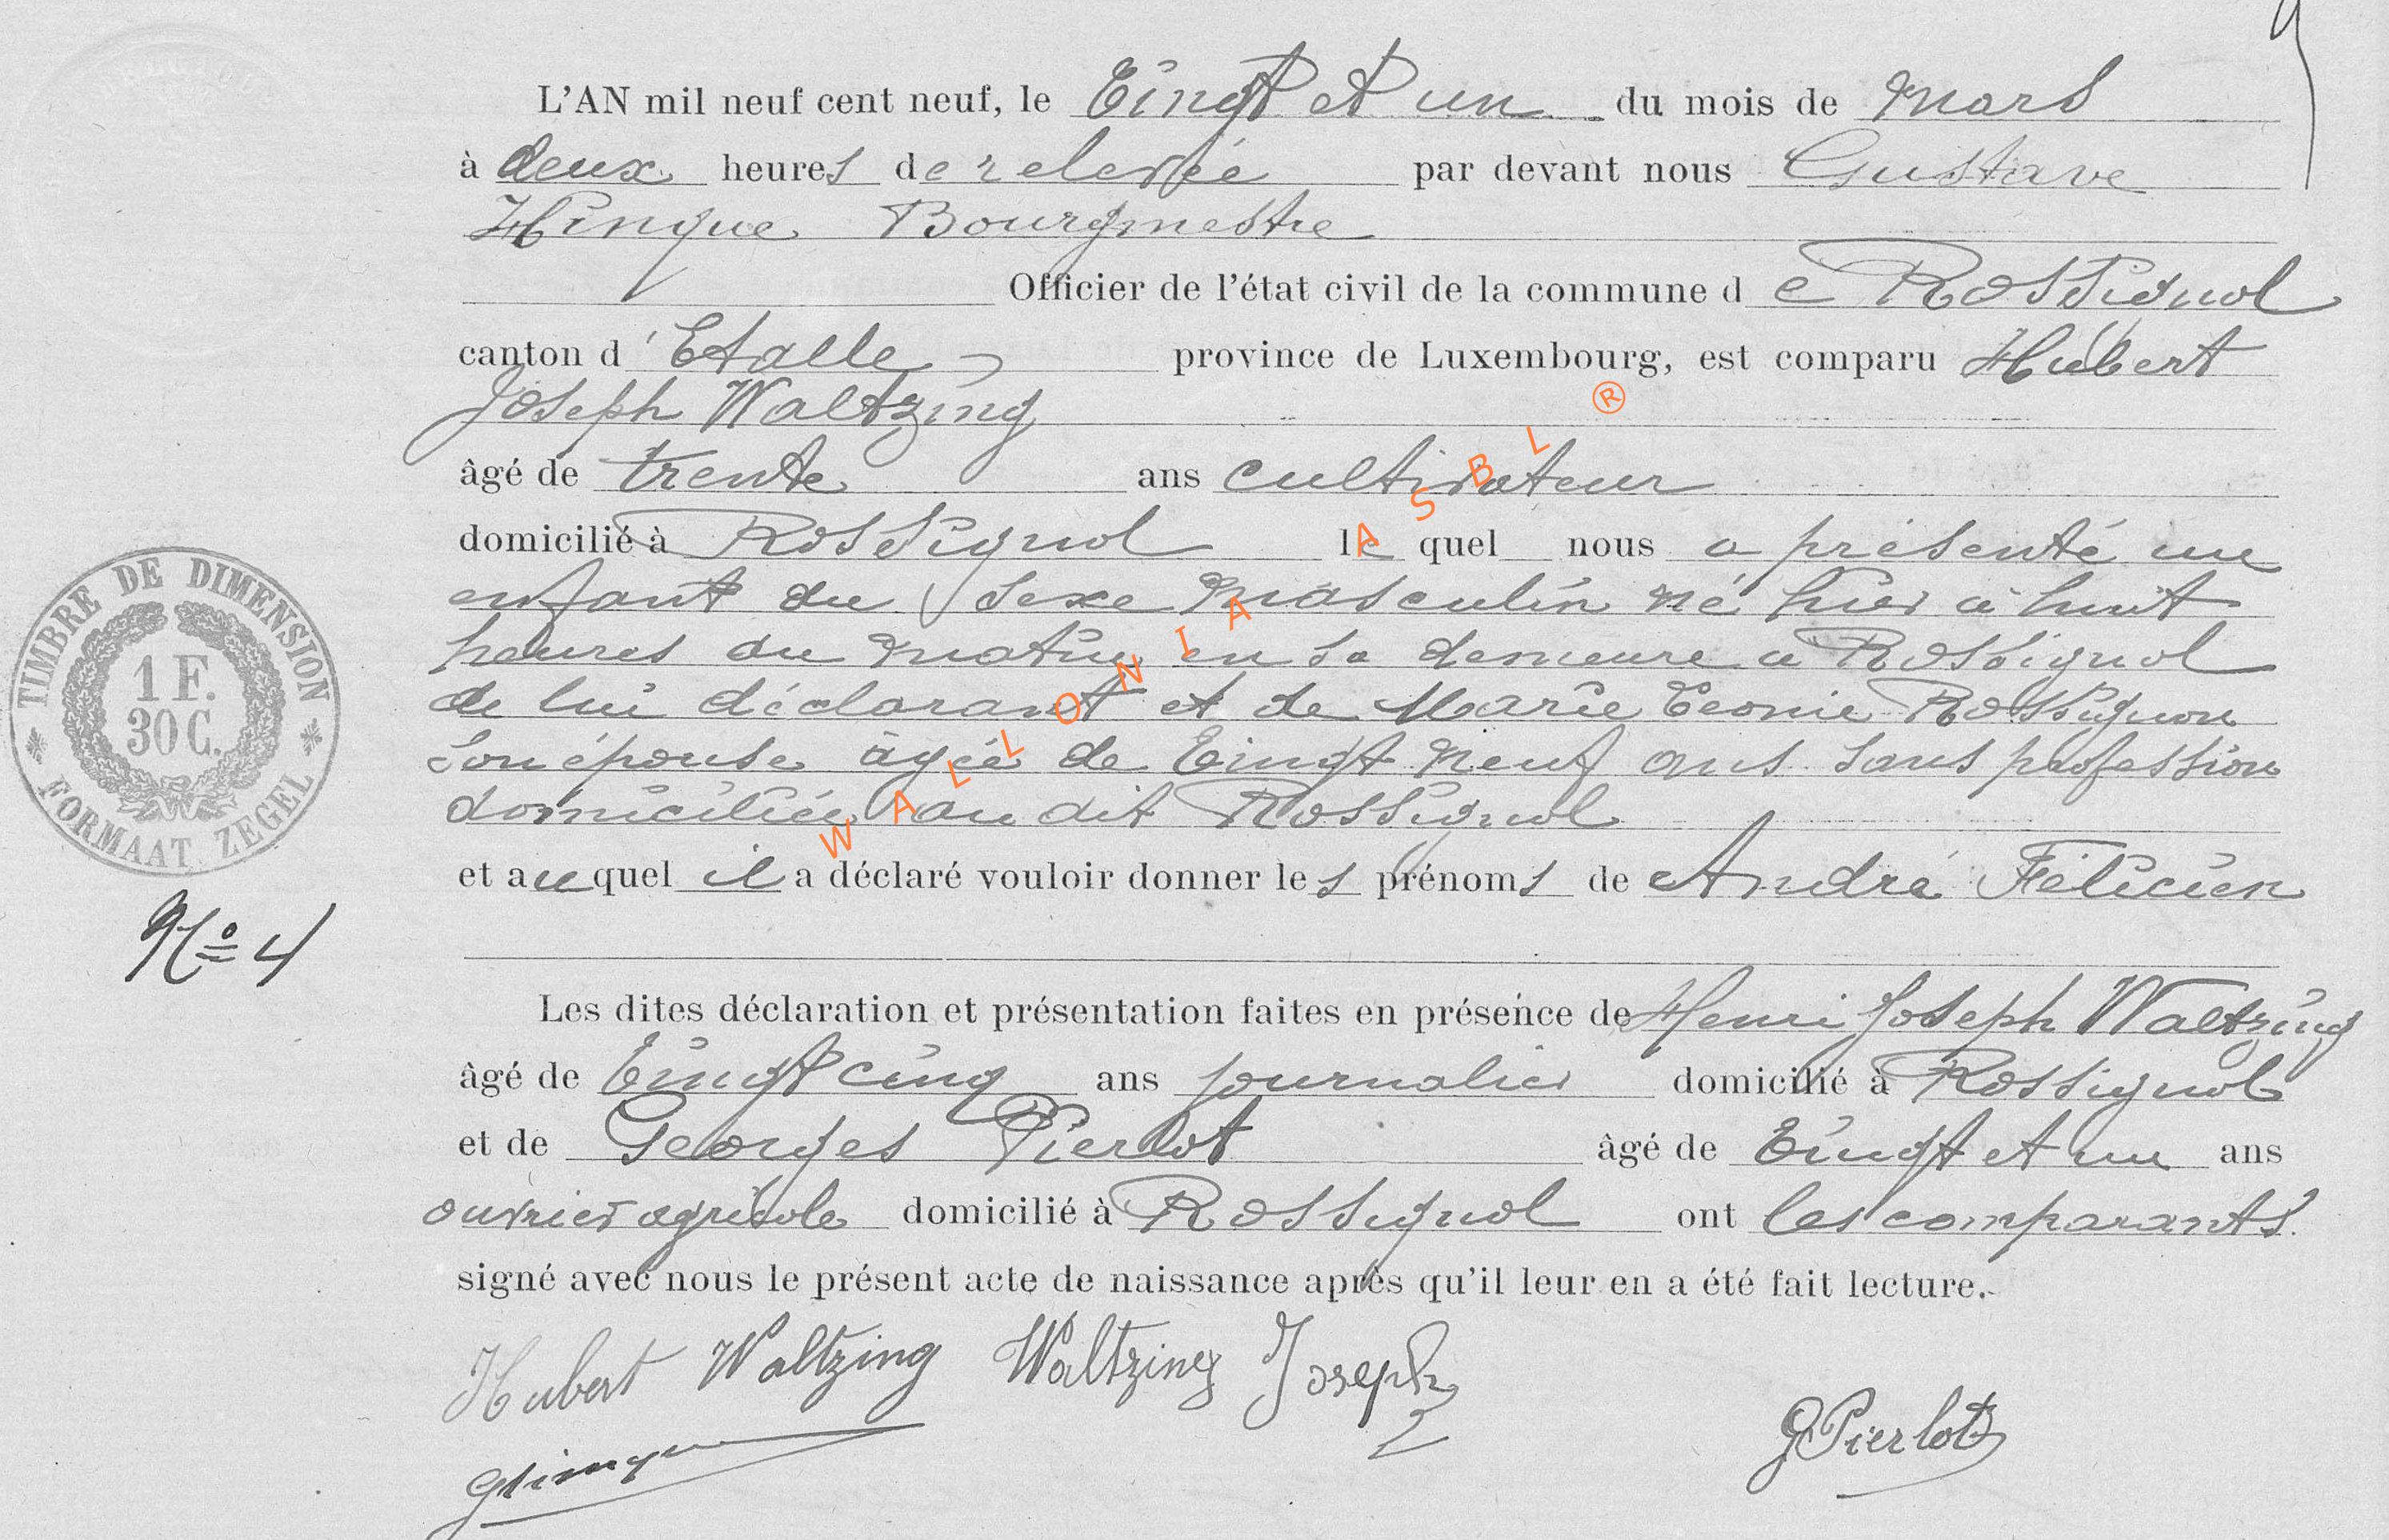 L'AN mil neuf cent neuf, le vingt et un du mois de mars
à deux heures de relevée par devant nous Gustave
Hinque Bourgmestre
Officier de l'état civil de la commune de Rossignol
canton d'Etalle province de Luxembourg, est comparu Hubert
Joseph Waltzing
âgé de trente ans cultivateur
domicilié à Rossignol lequel nous a présenté un
enfant du sexe masculin né hier à huit
heures du matin en sa demeure a Rossignol
de lui déclarant et de Marie Leonie Rossignon
son épouse âgée de vingt neuf ans sans profession
domiciliée au dit Rossignol
et auquel il a déclaré vouloir donner les prénoms de André Félicien
Les dites déclaration et présentation faites en présence de Henri Joseph Waltzing
âgé de vingt cinq ans journalier domicilié à Rossignol
et de Georges Pierlot âgé de vingt et un ans
ouvrier agricole domicilié à Rossignol ont les comparants
signé avec nous le présent acte de naissance après qu'il leur en a été fait lecture.
Hubert Waltzing Waltzing Joseph
GHinque
GPierlot
TIMBRE DE DIMENSION
1 F.
30 C.
FORMAAT ZEGEL
No 4
WALLONIA ASBL ®